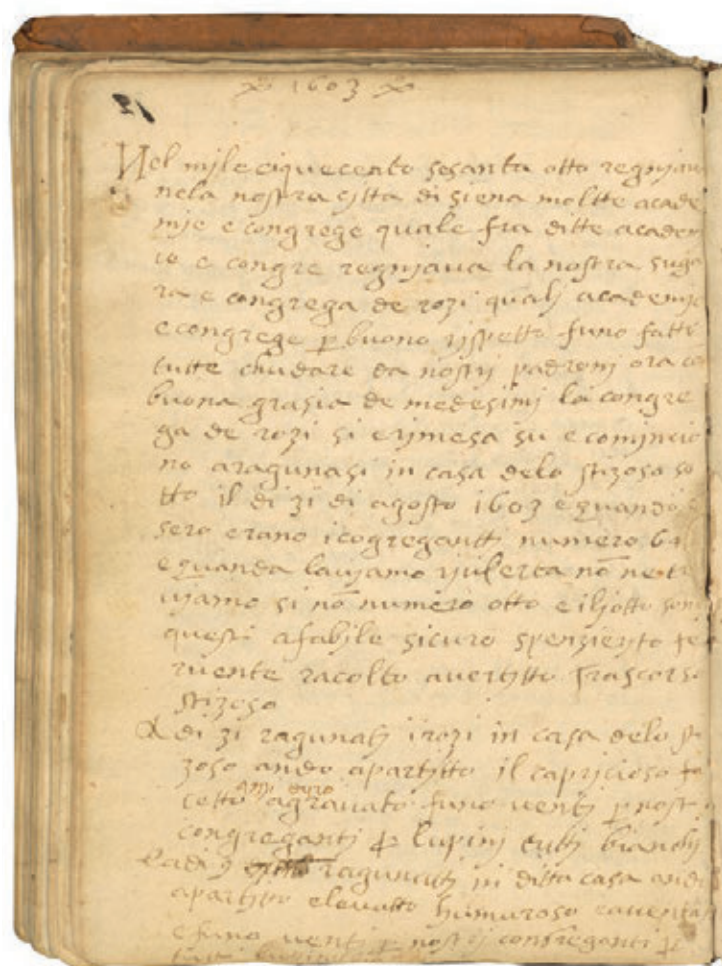 1603
Nel mjle ciquecento sesanta otto regnjau
nela nostra citta di siena moltte acade
mje e congrege quale fra ditte academ
ie e congre regnjaua la nostra suga
ra e congrega de rozi qualj academje
e congrege p buono rispetto funo fatti
tutte chudare da nostri padronj ora co
buona grasia de medesimj la congre
ga de rozi si e rimesa su e comincio
no aragunasi in casa delo stizoso so
tto il di 31 di agosto 1603 e quando
sero erano i cogregantti numero 64
e quanda laujamo non ne tr
ujamo si nō numero otto e iljotto son
questi afabile sicuro spensierito
ruente racolto auertitto Frascorso
stizoso
A di 31 ragunatj i rozi in casa delo st
zoso ando apartitto il capricioso
cetto agrauato funo uenti p nost
congreganti p lupini tutti bianchj
E adi 9 ragunatj in ditta casa and
apartito eleuatto humuroso
e funo uenti p nostrj congreganti p